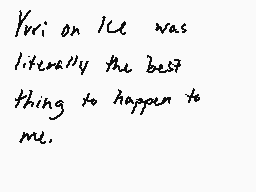 Yuri on Ice was
literally the best
thing to happen to
me.